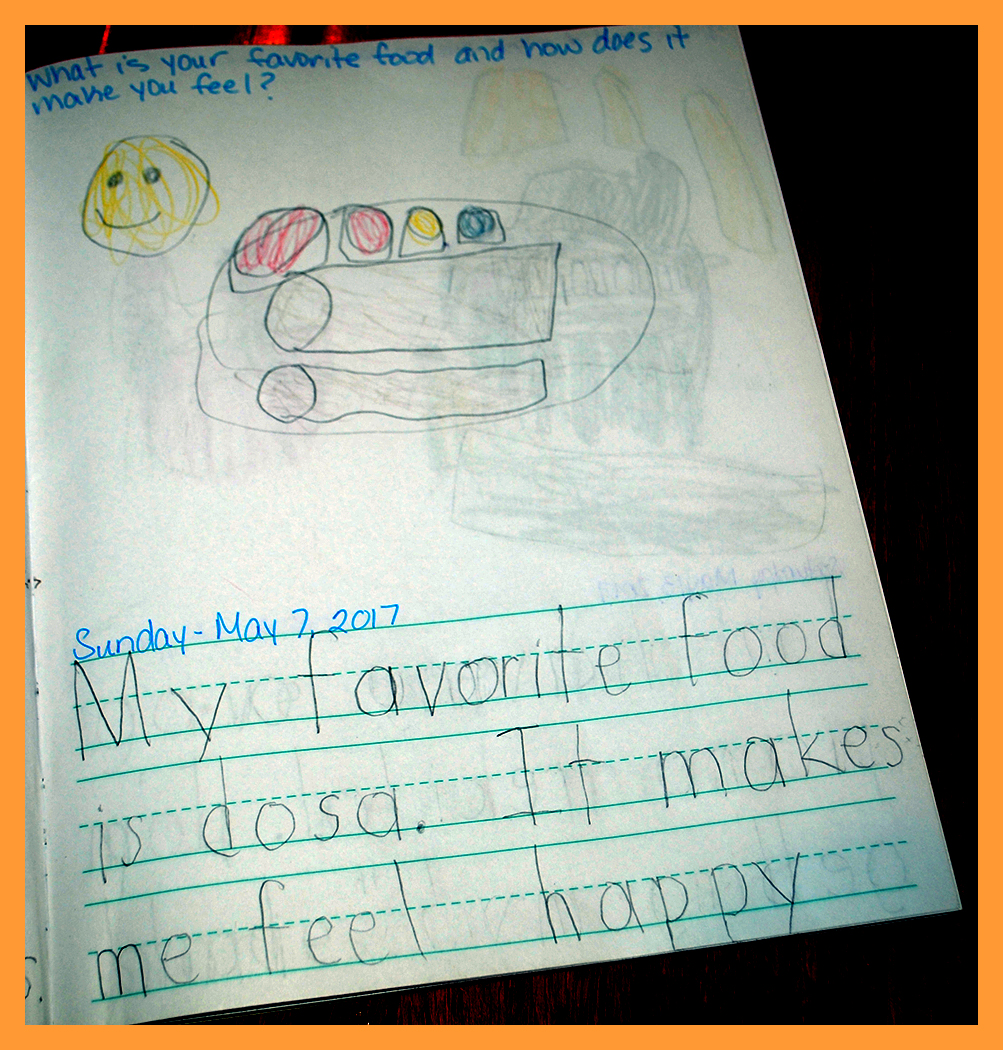 What is your favorite food and how does it
make you feel?
Sunday - May 7, 2017
My favorite food
is dosa. It makes
me feel happy